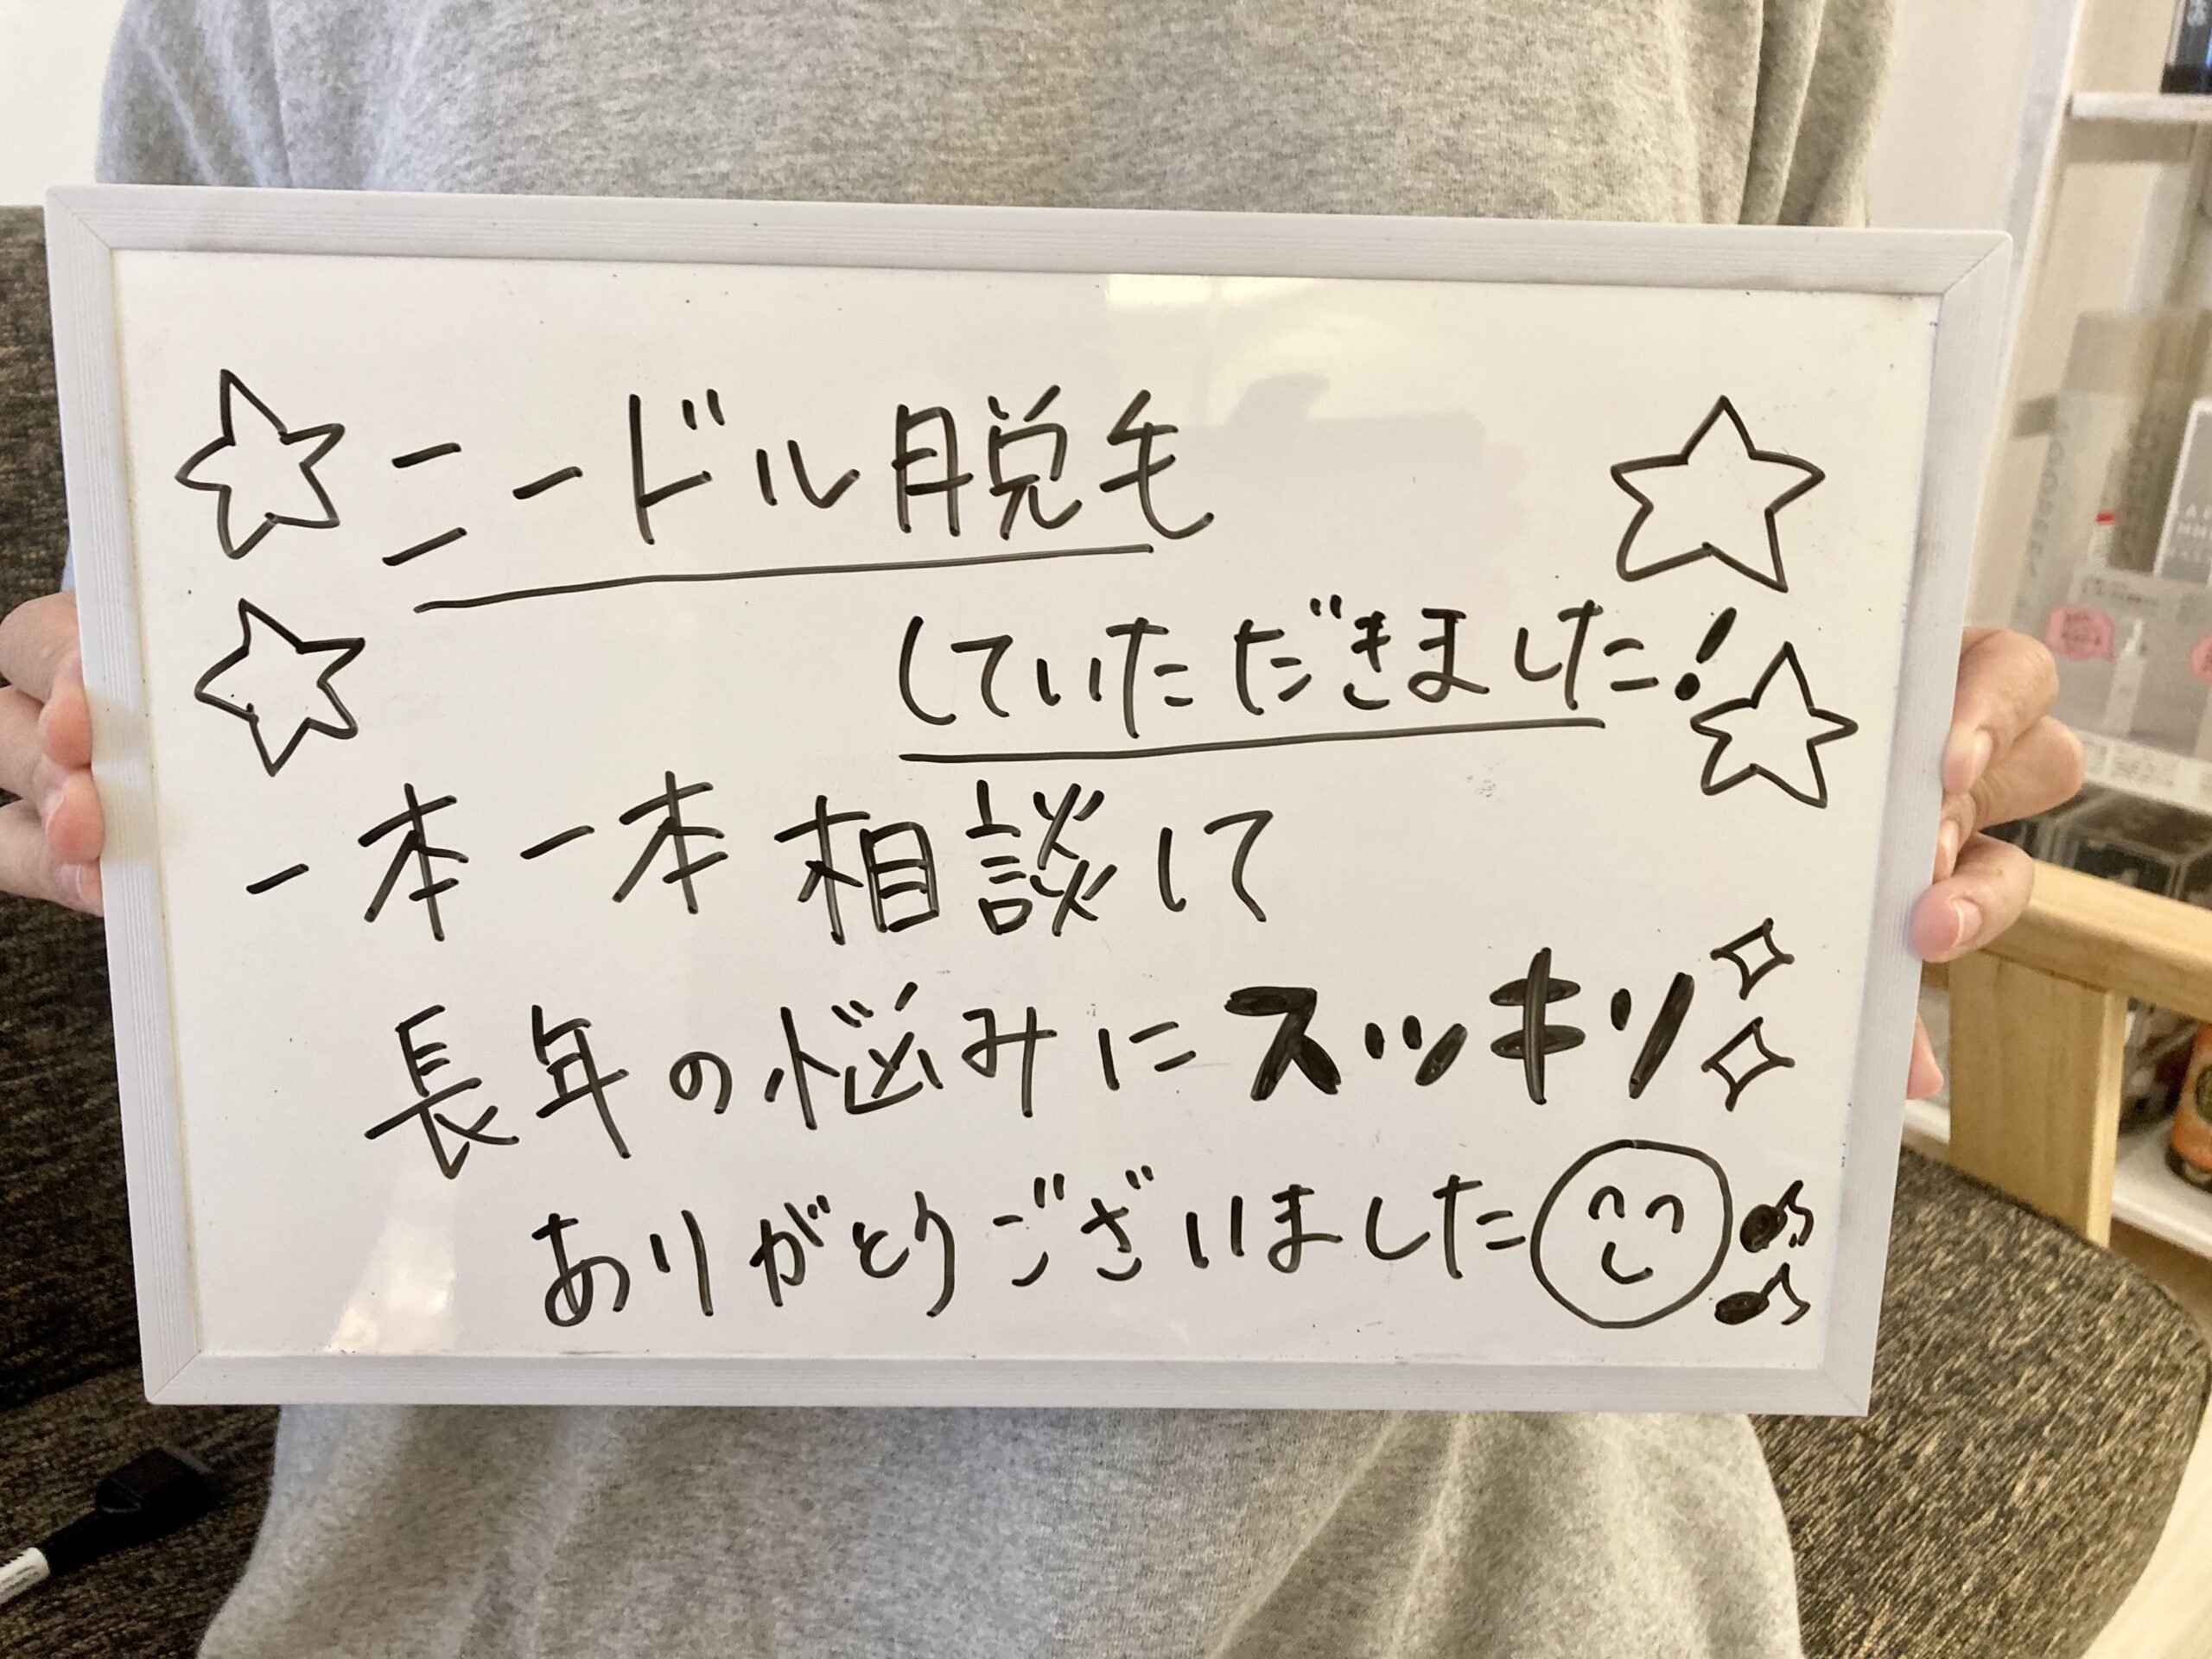 ニードル脱毛
していただきました!
一本一本相談して
長年の悩みにスッキリ
ありがとうございました